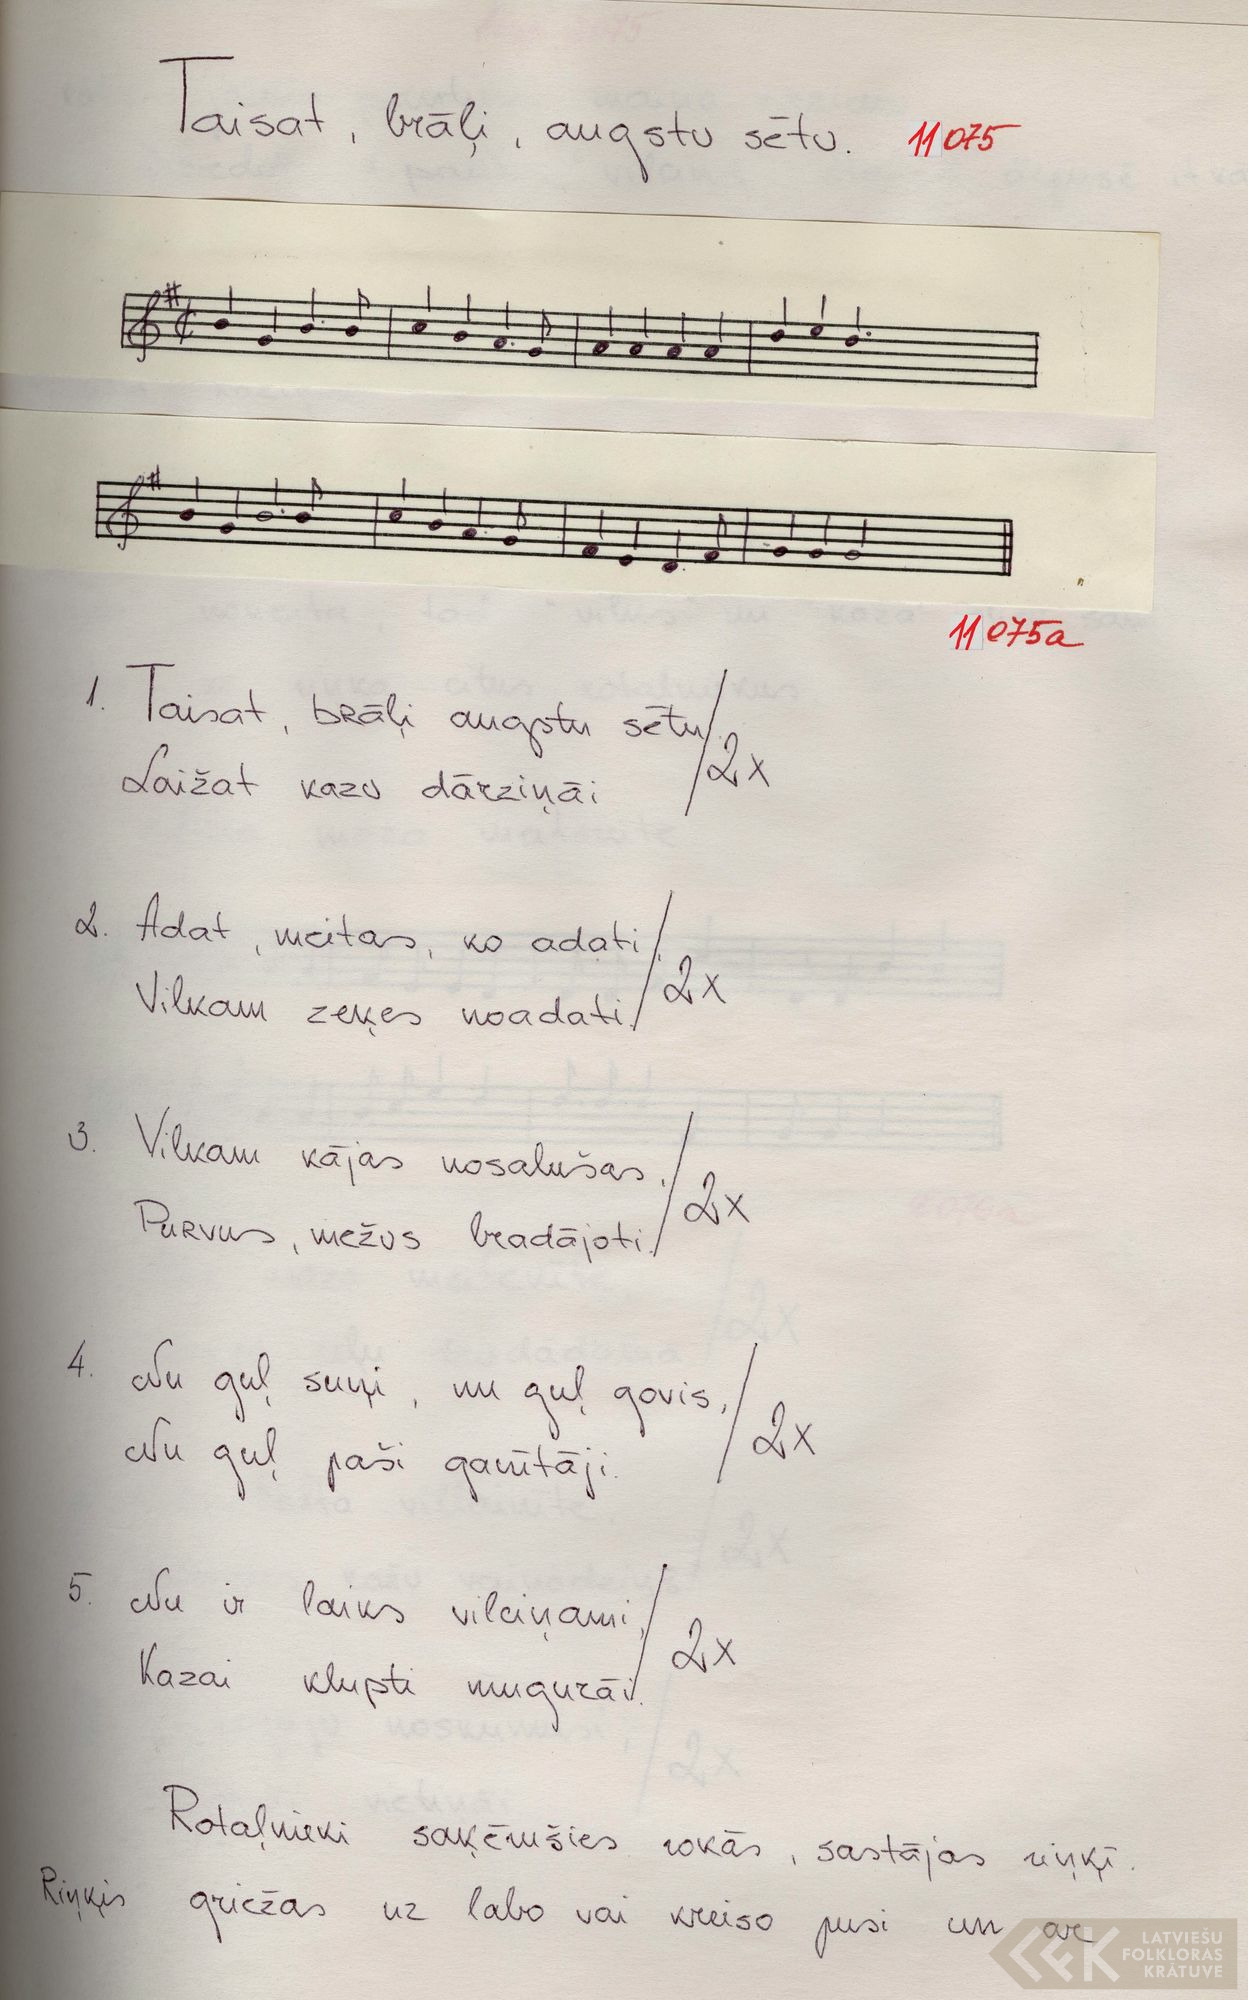 Taisat, brāļi, augstu sētu. 11075
11075a
1. Taisat, brāļi augstu sētu,
Laižat kazu dārziņāi 2x
2. Adat, meitas, ko adati,
Vilkam zeķes noadati. 2x
3. Vilkam kājas nosalušas,
Purvus, mežus bradājoti. 2x
4. Nu guļ suņi, nu guļ govis,
Nu guļ paši ganītāji. 2x
5. Nu ir laiks vilciņami,
Kazai klupti mugurāi. 2x
Rotaļnieki saķērušies rokās, sastājas riņķī.
Riņķis griežas uz labo vai kreiso pusi un ar
LATVIEŠU
FOLKLORAS
KRĀTUVE